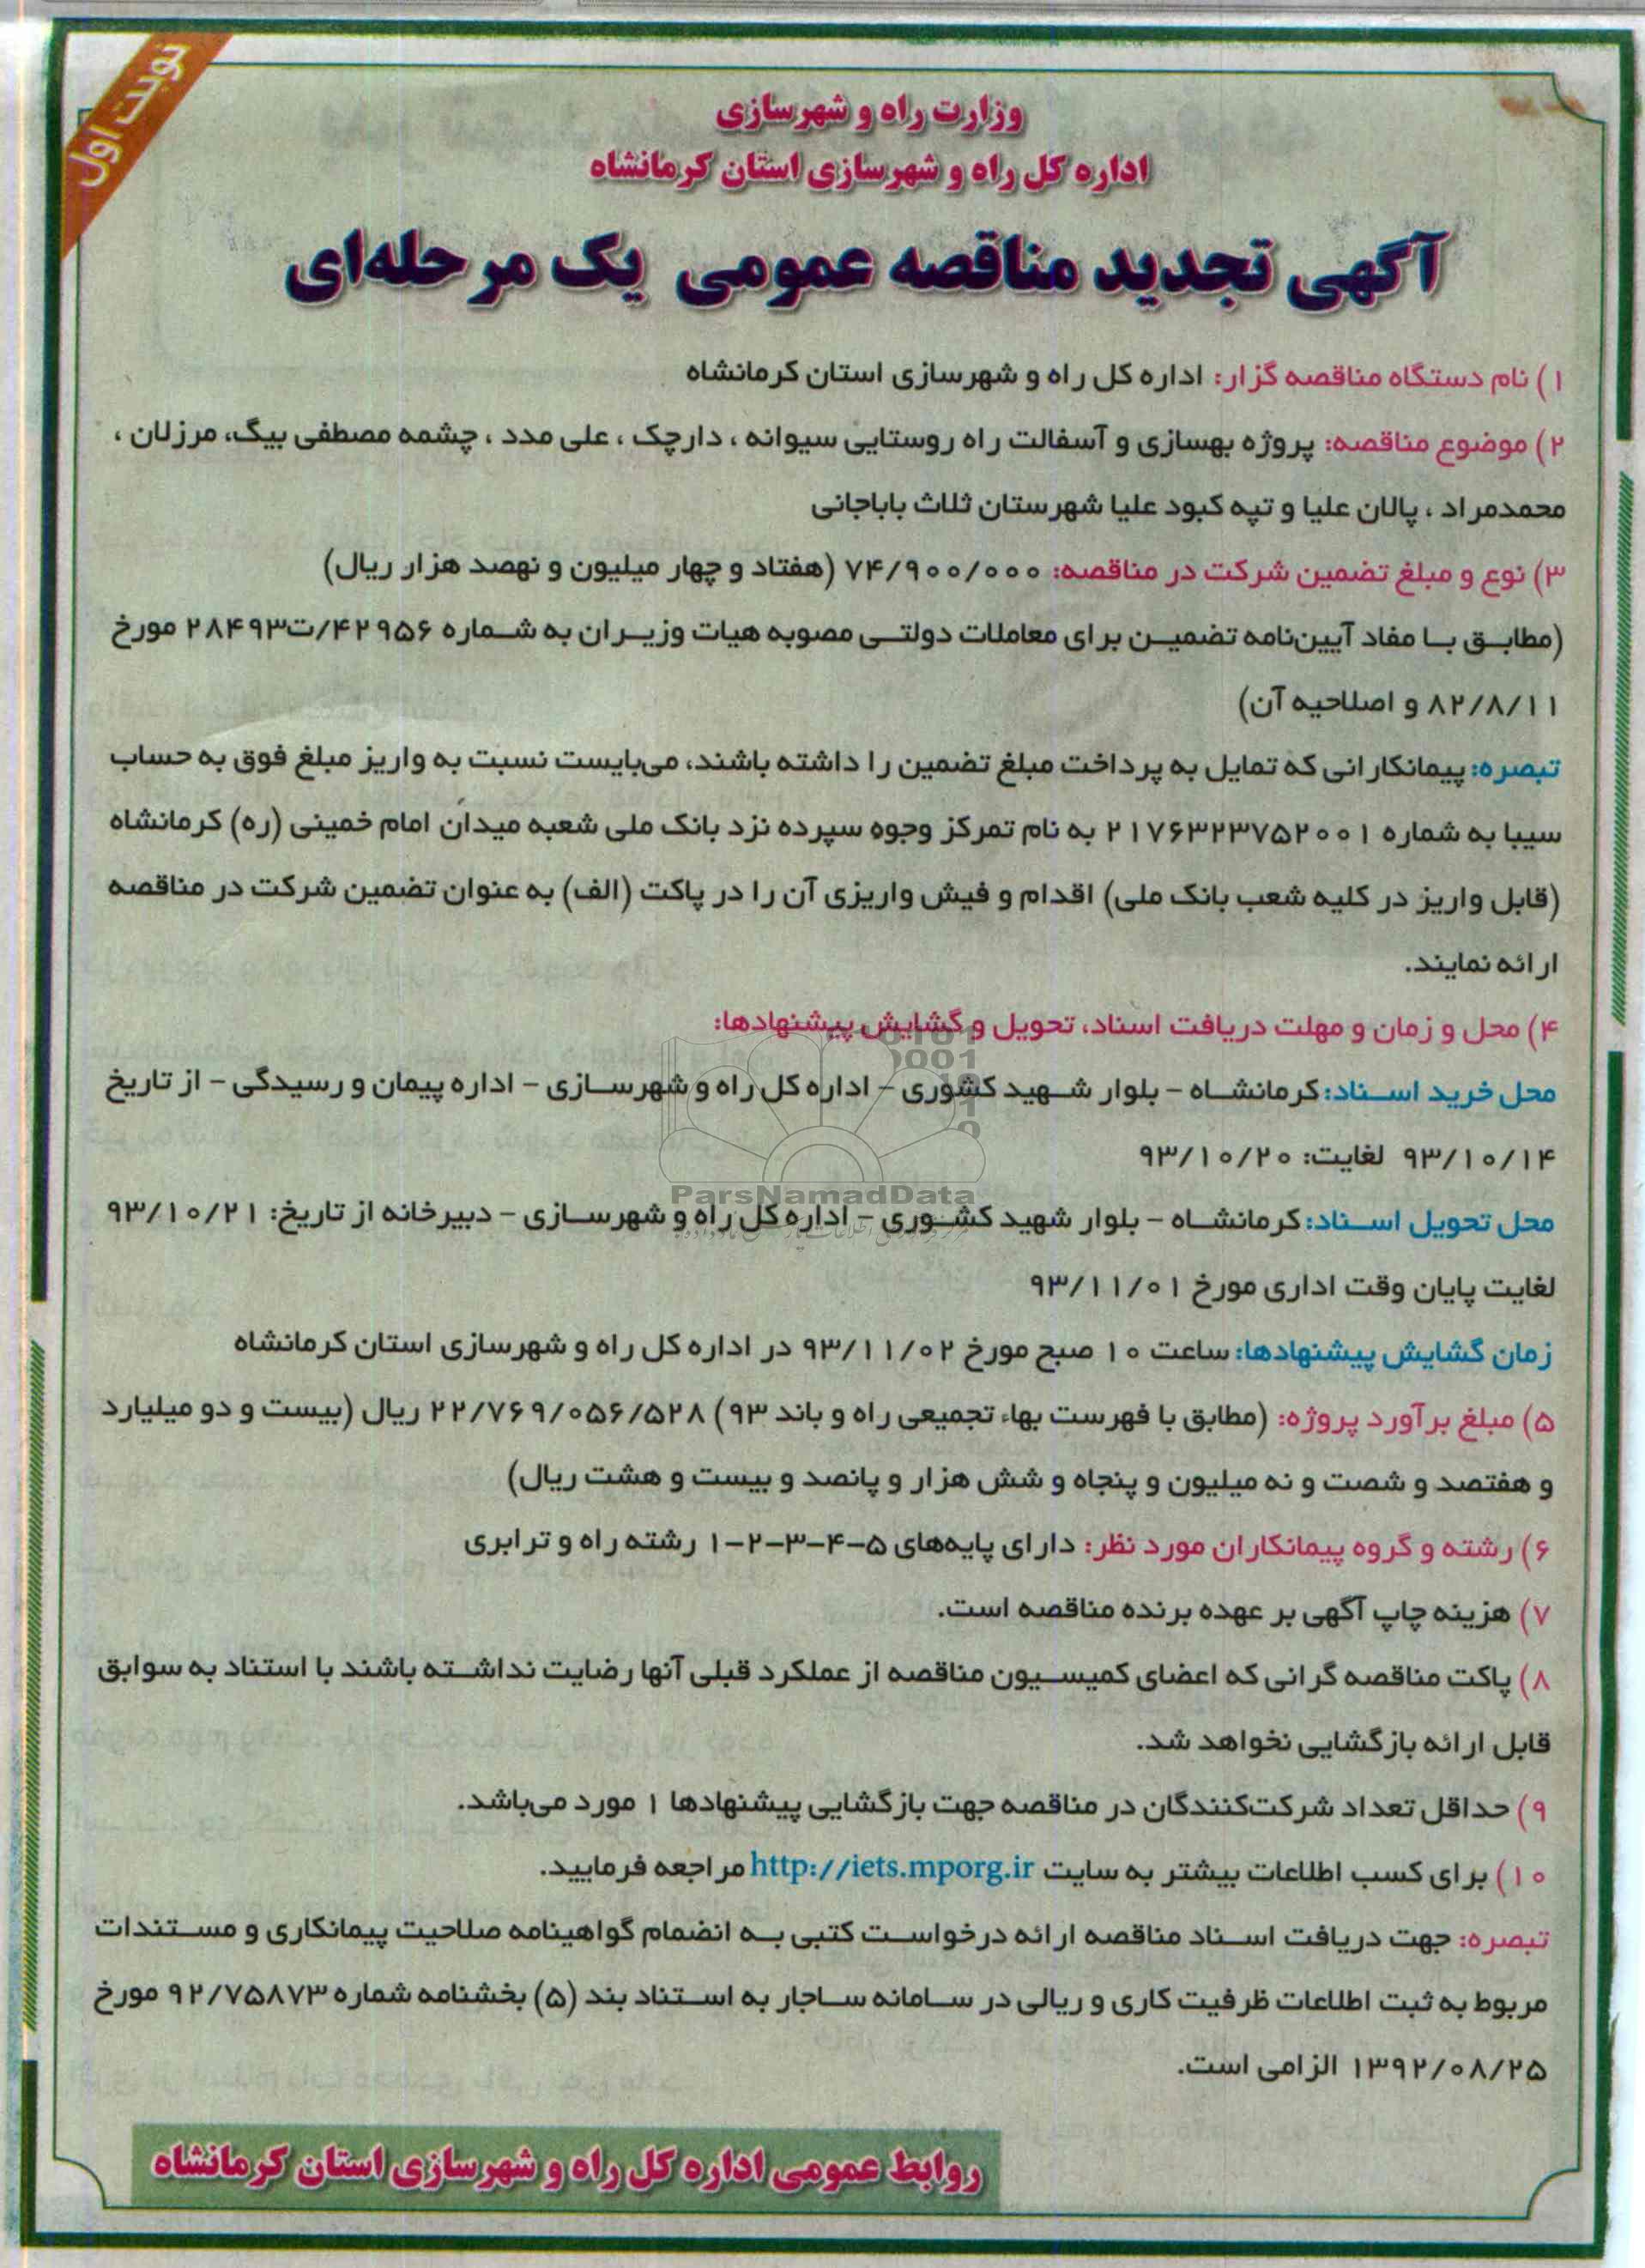 نوبت اول
وزارت راه و شهرسازی
اداره کل راه و شهرسازی استان کرمانشاه
آگهی تجدید مناقصه عمومی یک مرحله‌ای
۱) نام دستگاه مناقصه گزار: اداره کل راه و شهرسازی استان کرمانشاه
۲) موضوع مناقصه: پروژه بهسازی و آسفالت راه روستایی سیوانه ، دارچک ، علی مدد ، چشمه مصطفی بیگ، مرزلان ،
محمدمراد ، پالان علیا و تپه کبود علیا شهرستان ثلاث باباجانی
۳) نوع و مبلغ تضمین شرکت در مناقصه: ۷۴/۹۰۰/۰۰۰ (هفتاد و چهار میلیون و نهصد هزار ریال)
(مطابق با مفاد آیین‌نامه تضمین برای معاملات دولتی مصوبه هیات وزیران به شماره ۴۲۹۵۶/ت۲۸۴۹۳ مورخ
۸۲/۸/۱۱ و اصلاحیه آن)
تبصره: پیمانکارانی که تمایل به پرداخت مبلغ تضمین را داشته باشند، می‌بایست نسبت به واریز مبلغ فوق به حساب
سیبا به شماره ۲۱۷۶۳۲۳۷۵۲۰۰۱ به نام تمرکز وجوه سپرده نزد بانک ملی شعبه میدان امام خمینی (ره) کرمانشاه
(قابل واریز در کلیه شعب بانک ملی) اقدام و فیش واریزی آن را در پاکت (الف) به عنوان تضمین شرکت در مناقصه
ارائه نمایند.
۴) محل و زمان و مهلت دریافت اسناد، تحویل و گشایش پیشنهادها:
محل خرید اسناد: کرمانشاه - بلوار شهید کشوری - اداره کل راه و شهرسازی - اداره پیمان و رسیدگی - از تاریخ
۹۳/۱۰/۱۴ لغایت: ۹۳/۱۰/۲۰
ParsNamadData
محل تحویل اسناد: کرمانشاه - بلوار شهید کشوری - اداره کل راه و شهرسازی - دبیرخانه از تاریخ: ۹۳/۱۰/۲۱
لغایت پایان وقت اداری مورخ ۹۳/۱۱/۰۱
زمان گشایش پیشنهادها: ساعت ۱۰ صبح مورخ ۹۳/۱۱/۰۲ در اداره کل راه و شهرسازی استان کرمانشاه
۵) مبلغ برآورد پروژه: (مطابق با فهرست بهاء تجمیعی راه و باند ۹۳) ۲۲/۷۶۹/۰۵۶/۵۲۸ ریال (بیست و دو میلیارد
و هفتصد و شصت و نه میلیون و پنجاه و شش هزار و پانصد و بیست و هشت ریال)
۶) رشته و گروه پیمانکاران مورد نظر: دارای پایه‌های ۵-۴-۳-۲-۱ رشته راه و ترابری
۷) هزینه چاپ آگهی بر عهده برنده مناقصه است.
۸) پاکت مناقصه گرانی که اعضای کمیسیون مناقصه از عملکرد قبلی آنها رضایت نداشته باشند با استناد به سوابق
قابل ارائه بازگشایی نخواهد شد.
۹) حداقل تعداد شرکت‌کنندگان در مناقصه جهت بازگشایی پیشنهادها ۱ مورد می‌باشد.
۱۰) برای کسب اطلاعات بیشتر به سایت http://iets.mporg.ir مراجعه فرمایید.
تبصره: جهت دریافت اسناد مناقصه ارائه درخواست کتبی به انضمام گواهینامه صلاحیت پیمانکاری و مستندات
مربوط به ثبت اطلاعات ظرفیت کاری و ریالی در سامانه ساجار به استناد بند (۵) بخشنامه شماره ۹۲/۷۵۸۷۳ مورخ
۱۳۹۲/۰۸/۲۵ الزامی است.
روابط عمومی اداره کل راه و شهرسازی استان کرمانشاه